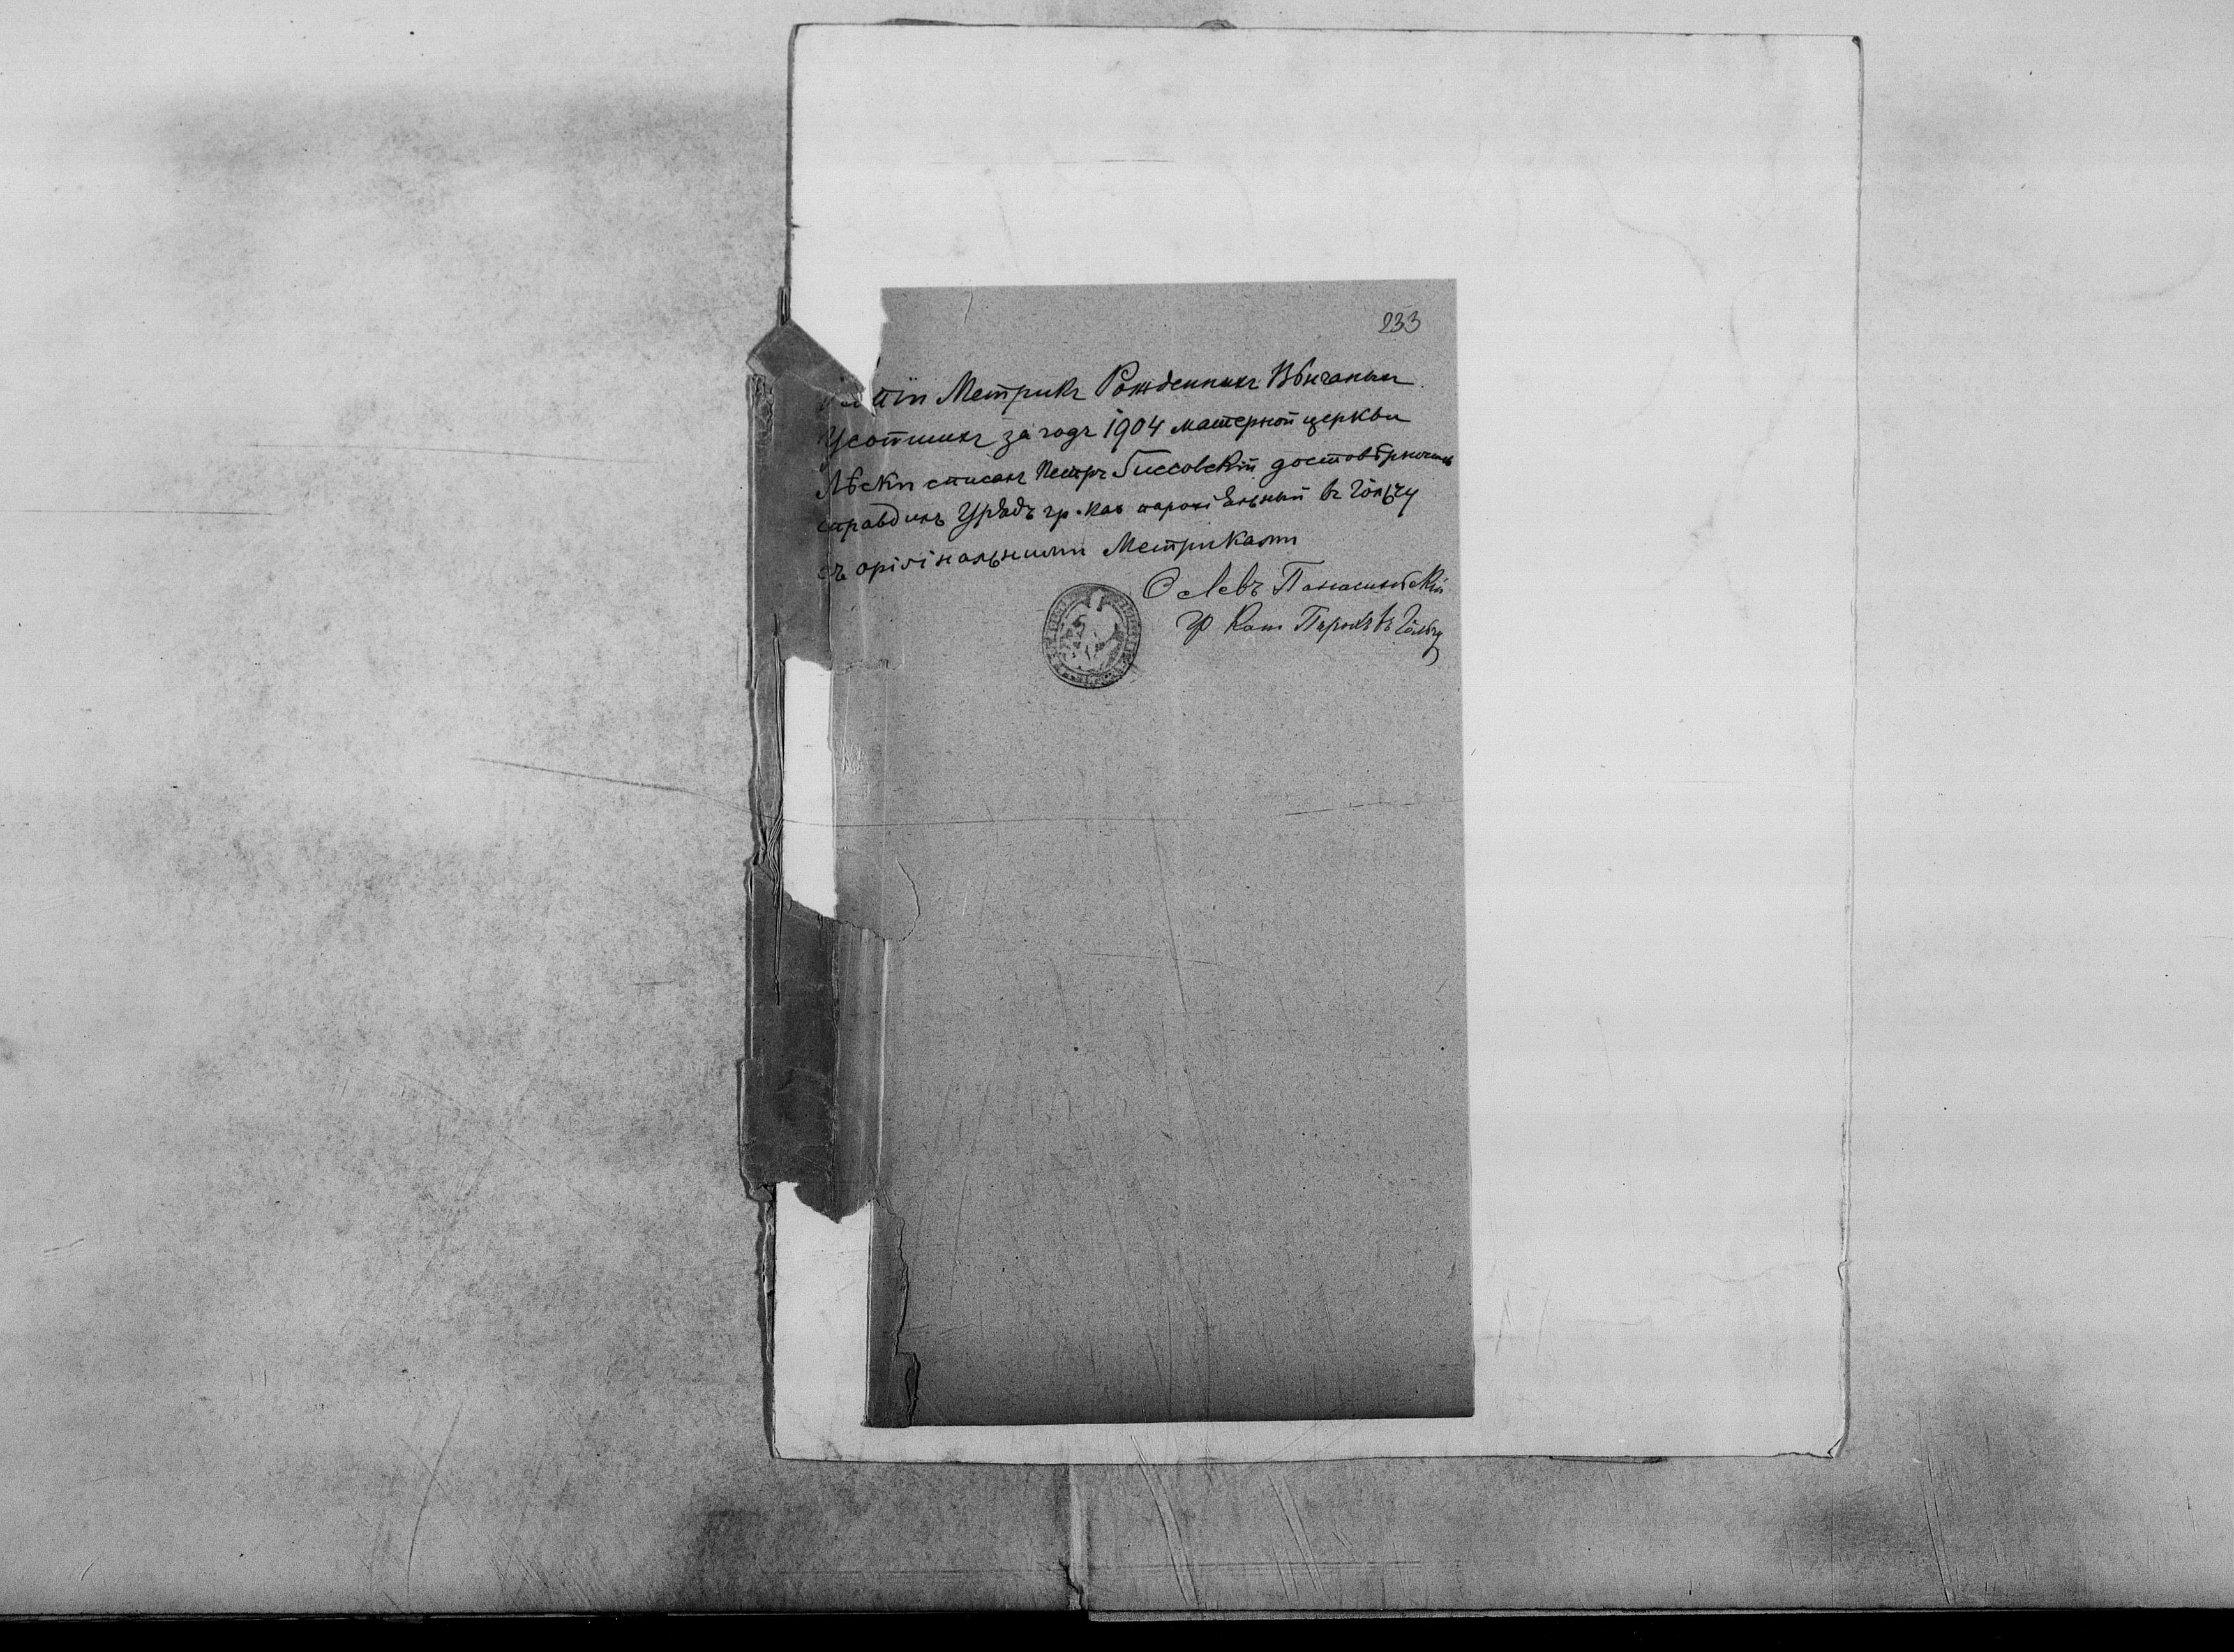 233
Метрикъ Рожденныхъ Вѣнчаныхъ
Усопшихъ за годъ 1904 матерной церкви
списалъ Петръ достовѣрность
справдилъ Урядъ гр. кат парохіяльный въ Гольчу
съ орігінальными Метриками
О Левъ
Гр Кат Парохъ въ Гольчу